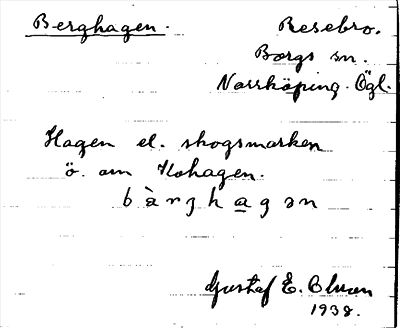 Berghagen.
Resebro.
Borgs sn.
Norrköping. Ögl.
Hagen el. skogsmarken
ö. om Kohagen.
bàrghagən
Gustaf E. Olson
1938.